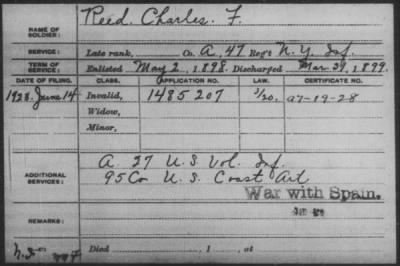 NAME OF SOLDIER: Reed, Charles. F.
SERVICE: Late rank, Co. A, 47 Reg't N.Y. Inf.
TERM OF SERVICE: Enlisted May 2, 1898. Discharged Mar 31, 1899.
DATE OF FILING. CLASS. APPLICATION NO. LAW. CERTIFICATE NO.
1923. June 14 Invalid, 1485207
Widow,
Minor,
ADDITIONAL SERVICES: A 27 U.S. Vol. Inf.
95 Co U.S. Coast Art
War with Spain.
REMARKS:
Died , 1 , at